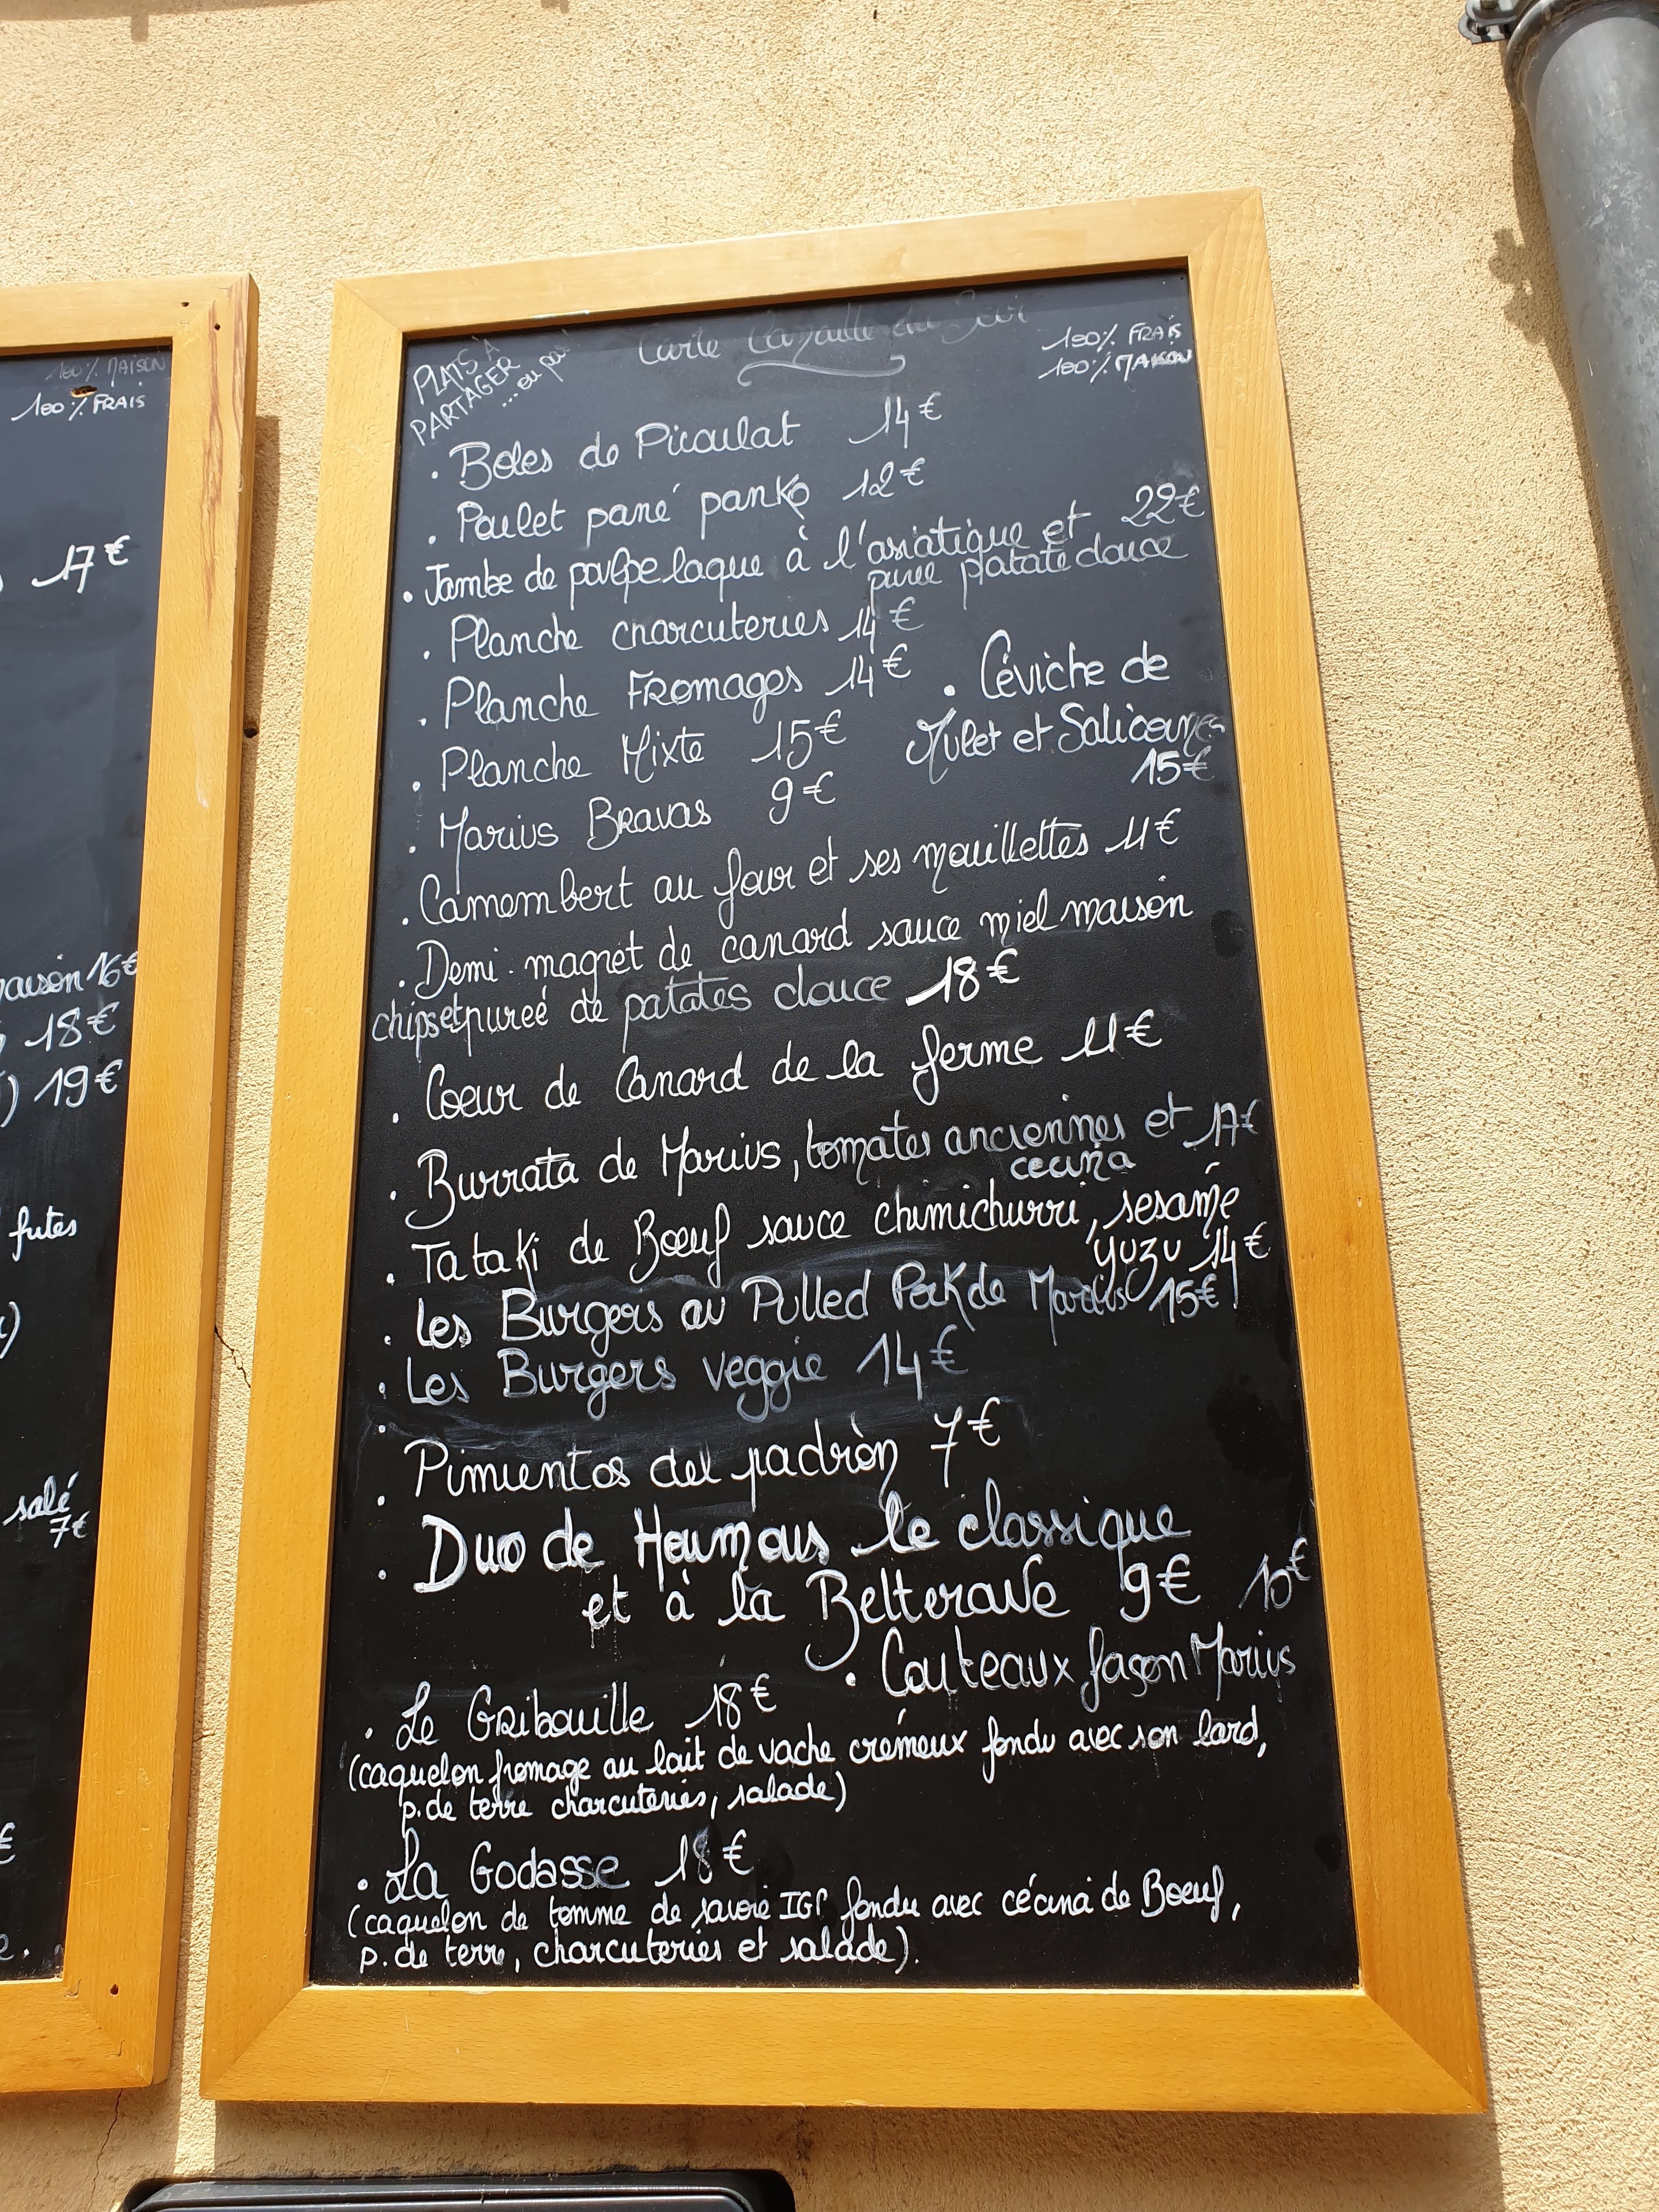 100% MAISON
100% FRAIS
17€
maison 16€
18€
) 19€
futes
)
salé
7€
€
PLATS À
PARTAGER
... ou pas
Carte Canaille du Soir
100% FRAIS
100% MAISON
. Boles de Picoulat 14€
. Poulet pané panko 12€
. Jambe de poulpe laque à l'asiatique et 22€
purée patate douce
. Planche charcuteries 14€
. Planche FROMAGES 14€
. Céviche de
Mulet et Salicornes
15€
. Planche Mixte 15€
. Marius Bravas 9€
. Camembert au four et ses mouillettes 11€
. Demi-magret de canard sauce miel maison
chips et pureé de patates douce 18€
. Coeur de Canard de la ferme 11€
. Burrata de Marius, tomates anciennes et 17€
cecina
. Tataki de Boeuf sauce chimichurri, sesame
yuzu 14€
. Les Burgers au Pulled Pork de Marius 15€
. Les Burgers veggie 14€
. Pimientos del padròn 7€
. Duo de Houmous le classique
et à la Betterave 9€
10€
. Couteaux façon Marius
. Le Gribouille 18€
(caquelon fromage au lait de vache crémeux fondu avec son lard,
p. de terre charcuteries, salade)
. La Godasse 18€
(caquelon de tomme de savoie IGP fondu avec cécina de Boeuf,
p. de terre, charcuteries et salade).